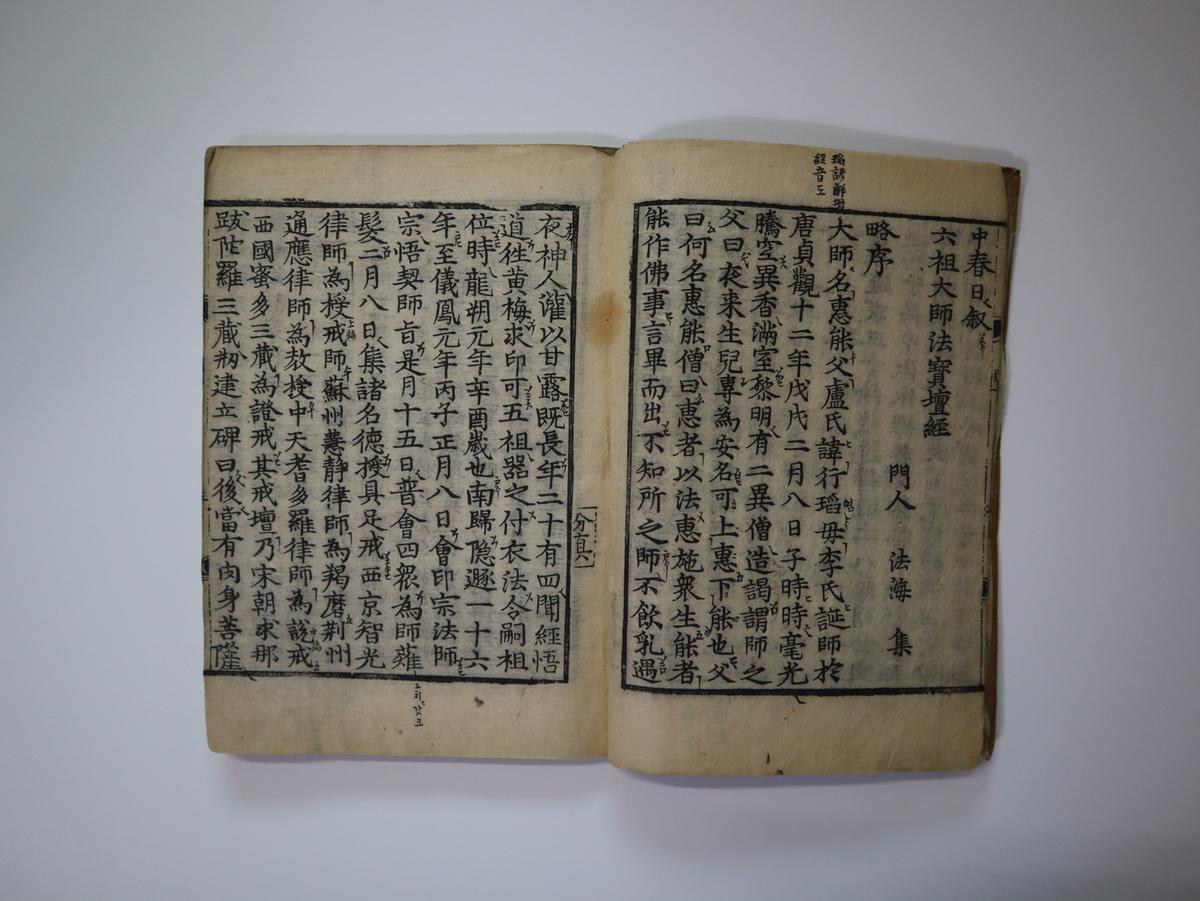 中春日叙
六祖大師法寶壇經
門人 法海 集
略序
大師名惠能父盧氏諱行瑫母李氏誕師於
唐貞觀十二年戊戌二月八日子時時毫光
騰空異香滿室黎明有二異僧造謁謂師之
父曰夜来生兒專為安名可上惠下能也父
曰何名惠能僧曰惠者以法惠施衆生能者
能作佛事言畢而出不知所之師不飲乳遇
夜神人灌以甘露既長年二十有四聞經悟
道往黄梅求印可五祖器之付衣法令嗣祖
位時龍朔元年辛酉歲也南歸隐遯一十六
年至儀鳳元年丙子正月八日會印宗法師
宗悟契師旨是月十五日普會四衆為師薙
髮二月八日集諸名德授具足戒西京智光
律師為授戒師蘇州慧静律師為羯磨荆州
通應律師為教授中天耆多羅律師為說戒
西國蜜多三藏為證戒其戒壇乃宋朝求那
跋陀羅三藏刱建立碑曰後當有肉身菩薩